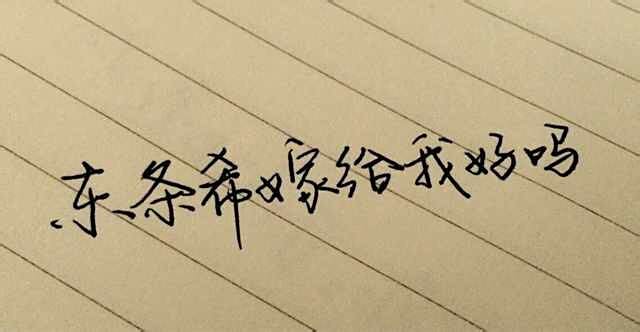 东条希嫁给我好吗